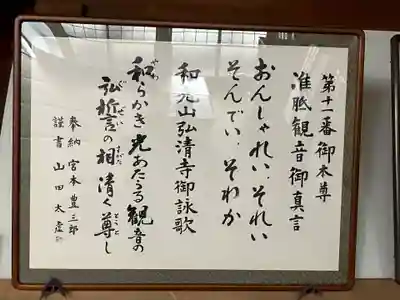 第十一番御本尊
准胝観音御真言
おんしゃれい.それい
そんでい.そわか
和光山弘清寺御詠歌
和らかき光あたうる観音の
弘誓の相清く尊し
奉納 宮本豊三郎
謹書 山田太虚